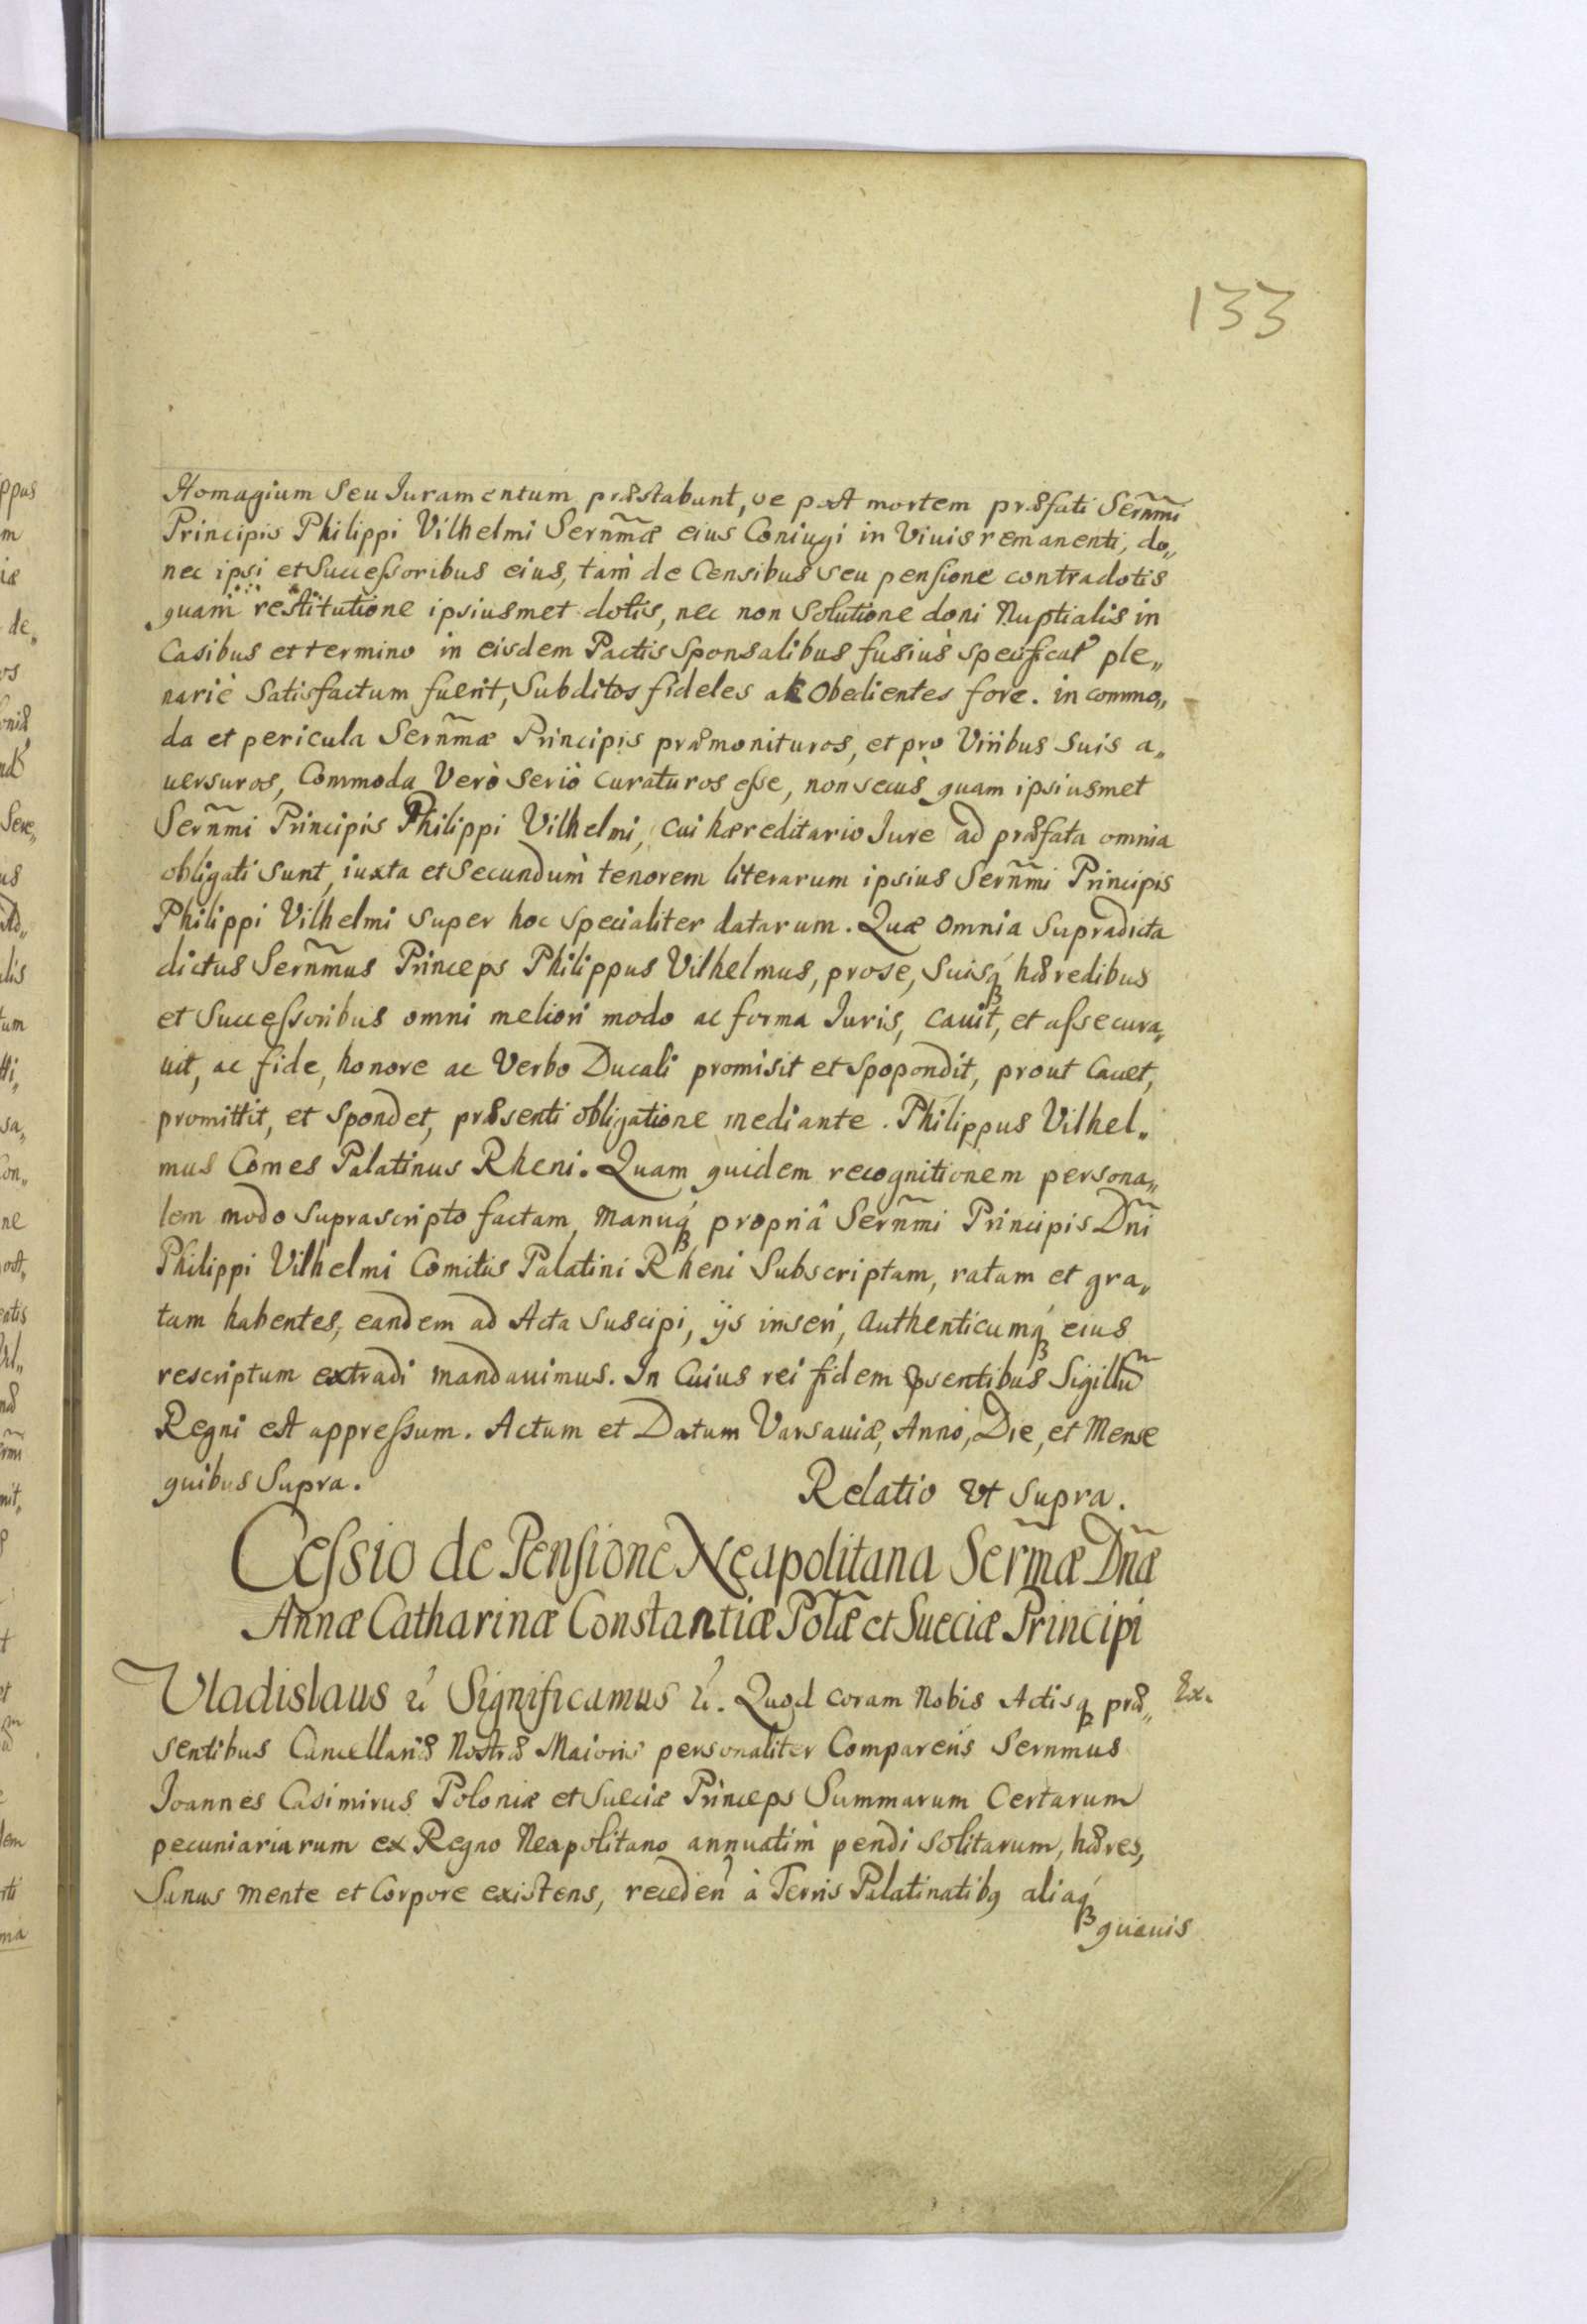 133
Homagium Seu Iuramentum præstabunt, se post mortem præfati Serñmi
Principis Philippi Vilhelmi Serñmæ eius Coniugi in Viuis remanenti, do„
nec ipsi et Successoribus eius, tam de Censibus seu pensione contradotis
quam restitutione ipsiusmet dotis, nec non Solutione doni Nuptialis in
Casibus et termino in eisdem Pactis Sponsalibus fusius specificat ple„
nariè Satisfactum fuerit, Subditos fideles ac Obedientes fore. in commo„
da et pericula Serñmæ Principis præmonituros, et pro Viribus suis a„
uersuros, Commoda Verò seriò curaturos esse, non secus quam ipsiusmet
Serñmi Principis Philippi Vilhelmi, cui hæreditario Iure ad præfata omnia
obligati sunt, iuxta et Secundum tenorem literarum ipsius Serñmi Principis
Philippi Vilhelmi super hoc specialiter datarum. Quæ omnia Supradicta
dictus Serñmus Princeps Philippus Vilhelmus, pro se, suisq́ hæredibus
et Successoribus omni meliori modo ac forma Iuris, cauit, et assecura„
uit, ac fide, honore ac Verbo Ducali promisit et Spopondit, prout Cauet,
promittit, et Spondet, præsenti obligatione mediante. Philippus Vilhel„
mus Comes Palatinus Rheni. Quam quidem recognitionem persona„
lem modo suprascripto factam, manuq́ propriâ Serñmi Principis Dñi
Philippi Vilhelmi Comitis Palatini Rheni Subscriptam, ratam et gra„
tam habentes, eandem ad Acta Suscipi, ijs inseri, authenticumq́ eius
rescriptum extradi mandauimus. In Cuius rei fidem pręsentibus Sigillũ
Regni est appressum. Actum et Datum Varsauiæ, Anno, Die, et Mense
quibus Supra.
Relatio Vt Supra.
Cessio de Pensione Neapolitana Serm̃æ Dñæ
Annæ Catharinæ Constantiæ Pol̃æ et Sueciæ Principi
Vladislaus &c Significamus &c. Quod coram Nobis Actisq præ„
Ex.
sentibus Cancellariæ Nostræ Maioris personaliter Comparens Sernmus
Ioannes Casimirus Poloniæ et Sueciæ Princeps Summarum Certarum
pecuniariarum ex Regno Neapolitano annuatim pendi solitarum, hæres,
Sanus mente et Corpore existens, receden à Terris Palatinatibq aliaq́
quauis